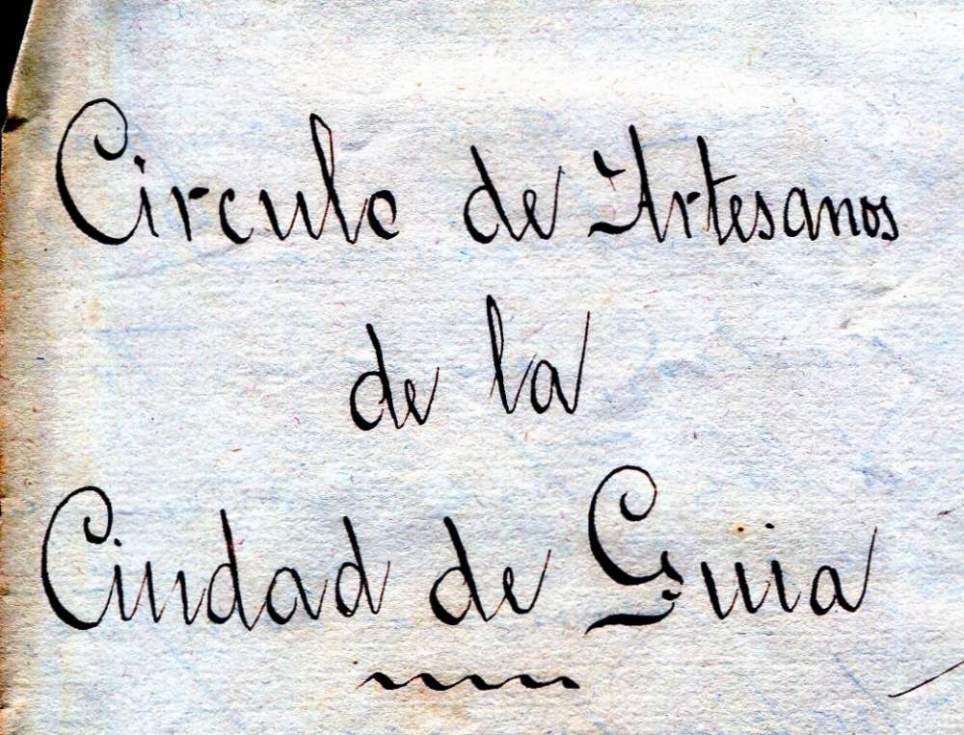 Circulo de Artesanos
de la
Ciudad de Guia